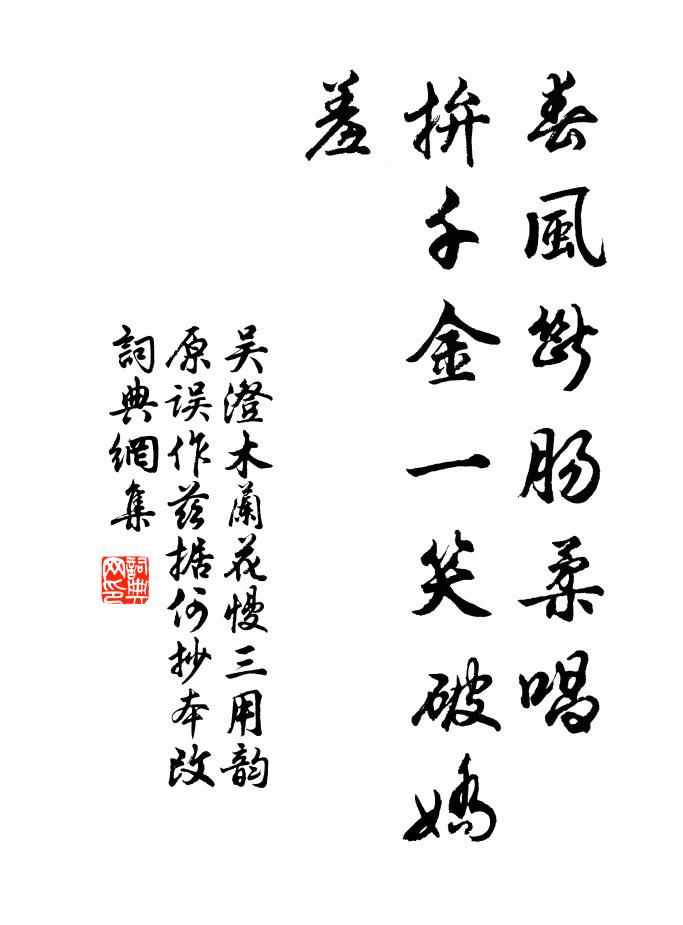 春風斷腸柔唱
拚千金一笑破嬌
羞
吴澄木蘭花慢三用韵
原误作兹据何抄本改
詞典網集
詞典网印